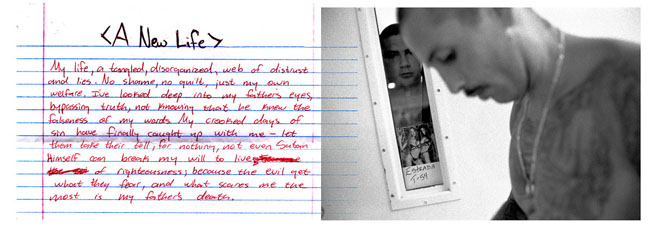 <A New Life>
My life, a tangled, disorganized, web of distrust
and lies. No shame, no guilt, just my own
welfare. I've looked deep into my father's eyes,
bypassing truth, not knowing that he knew the
falseness of my words. My crooked days of
sin have finally caught up with me – let
them take their tell, for nothing, not even Satan
Himself can break my will to live
of righteousness; because the evil get
what they fear, and what scares me the
most is my father's death.
ESTRADA
T-59